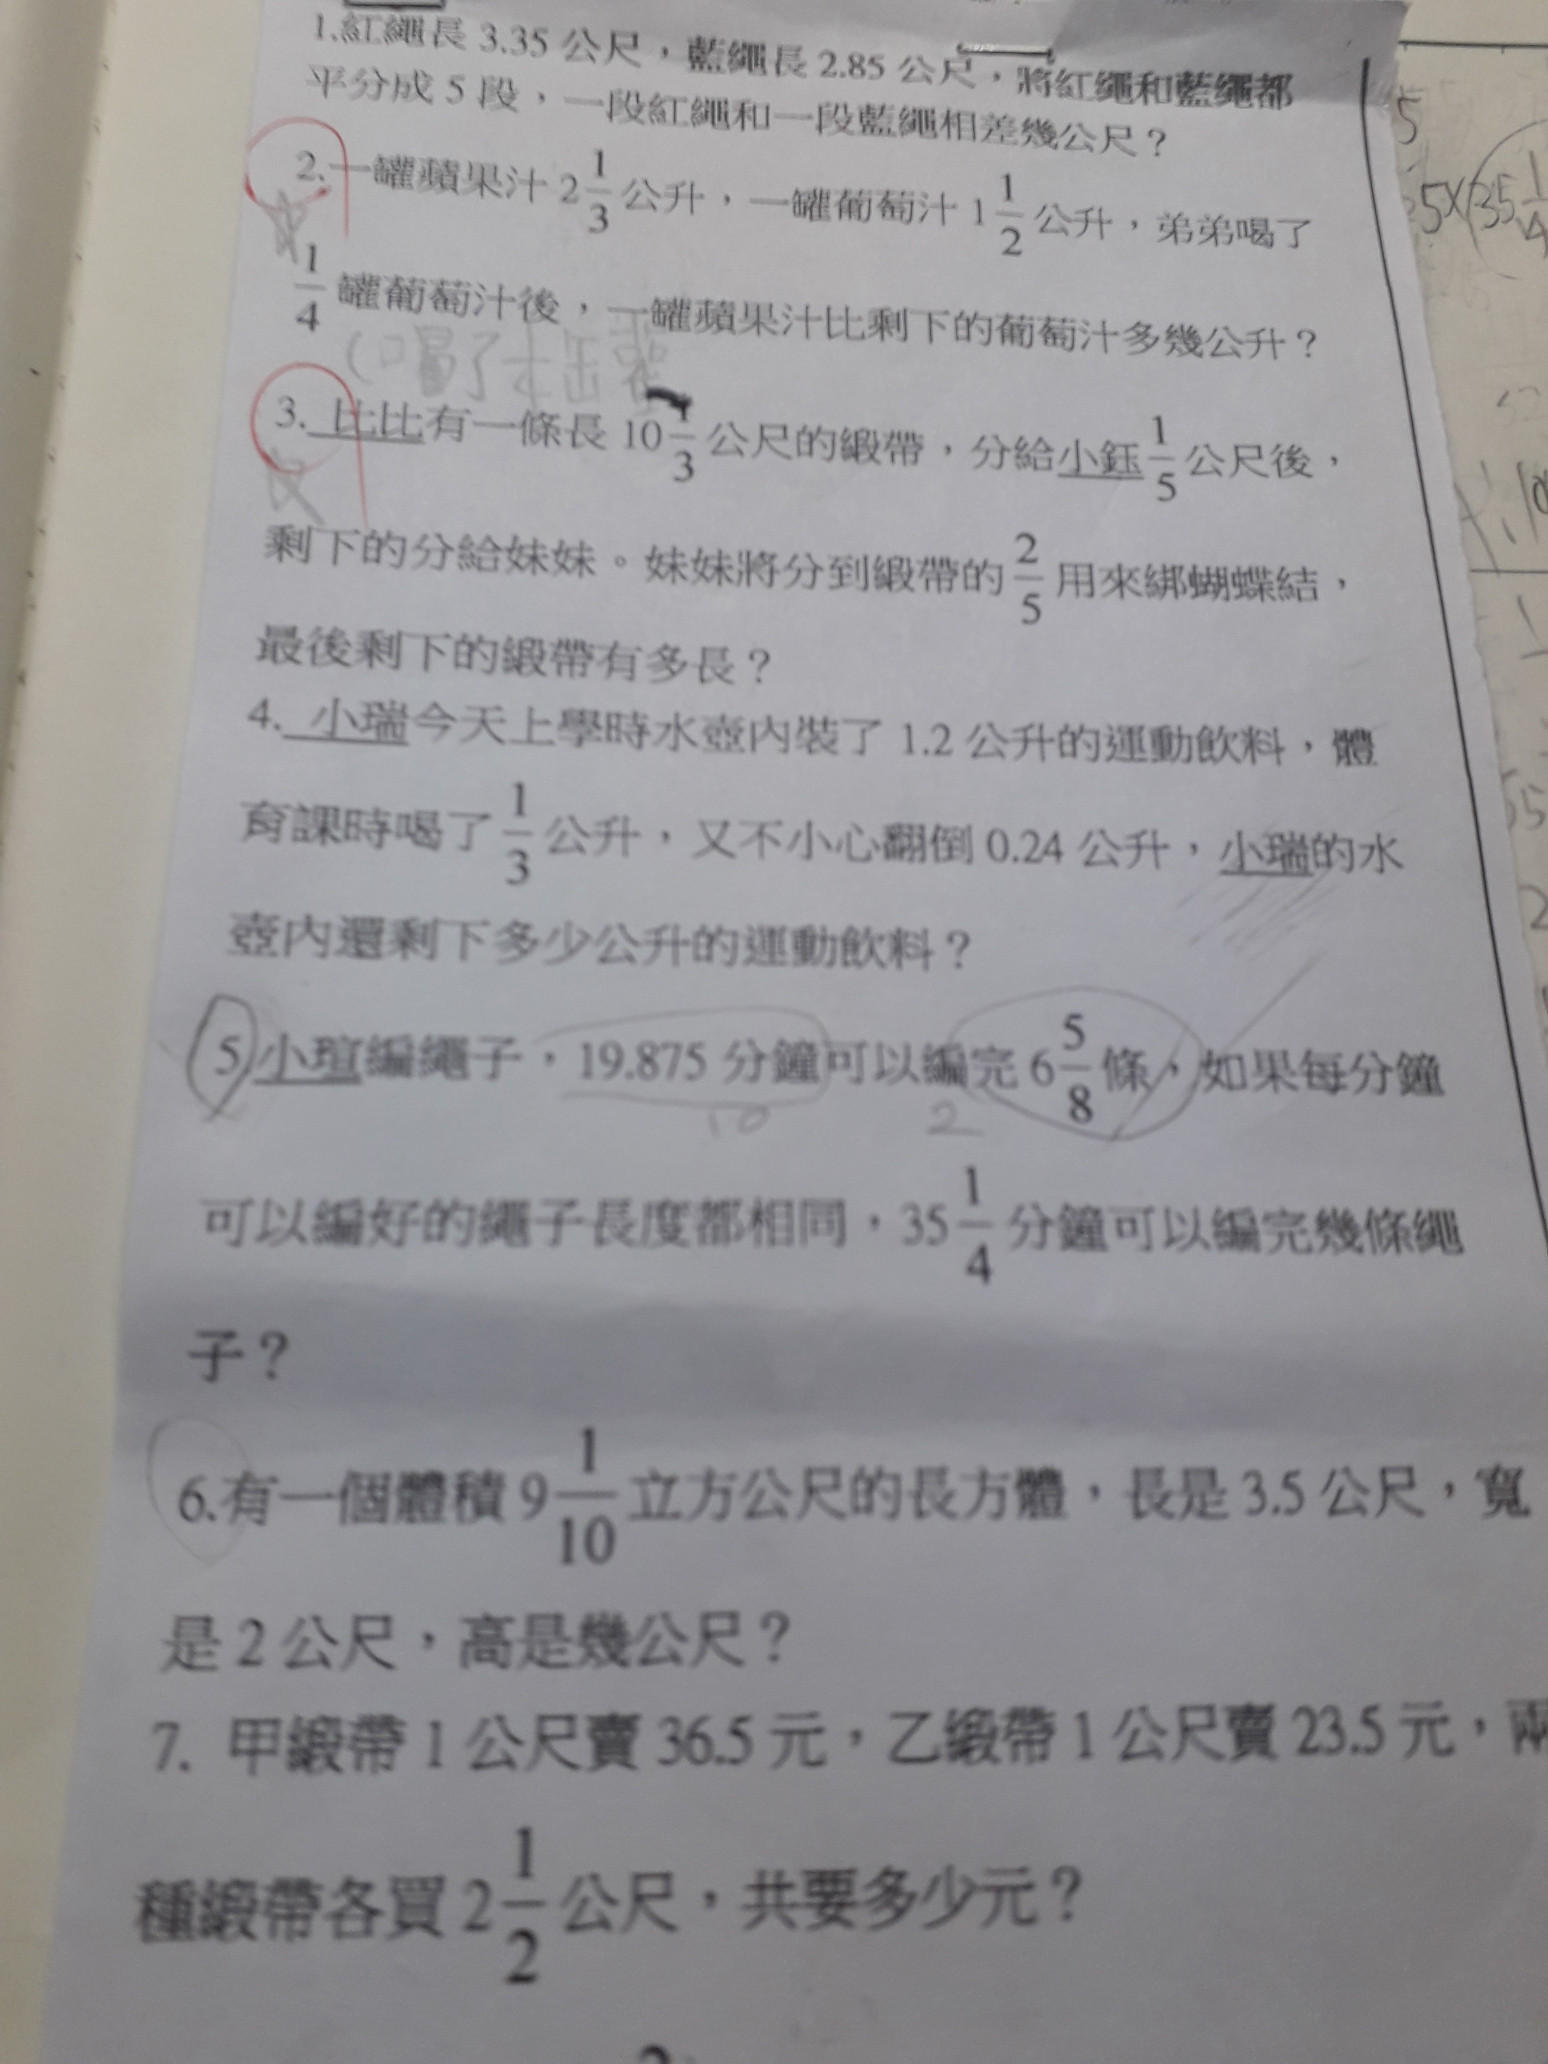 1.紅繩長 3.35 公尺，藍繩長 2.85 公尺，將紅繩和藍繩都
平分成 5 段，一段紅繩和一段藍繩相差幾公尺？
2.一罐蘋果汁 2 1/3 公升，一罐葡萄汁 1 1/2 公升，弟弟喝了
1/4 罐葡萄汁後，一罐蘋果汁比剩下的葡萄汁多幾公升？
3. 比比有一條長 10 1/3 公尺的緞帶，分給小鈺 1/5 公尺後，
剩下的分給妹妹。妹妹將分到緞帶的 2/5 用來綁蝴蝶結，
最後剩下的緞帶有多長？
4. 小瑞今天上學時水壺內裝了 1.2 公升的運動飲料，體
育課時喝了 1/3 公升，又不小心翻倒 0.24 公升，小瑞的水
壺內還剩下多少公升的運動飲料？
5.小瑄編繩子，19.875 分鐘可以編完 6 5/8 條，如果每分鐘
10 2
可以編好的繩子長度都相同，35 1/4 分鐘可以編完幾條繩
子？
6.有一個體積 9 1/10 立方公尺的長方體，長是 3.5 公尺，寬
是 2 公尺，高是幾公尺？
7. 甲緞帶 1 公尺賣 36.5 元，乙緞帶 1 公尺賣 23.5 元，兩
種緞帶各買 2 1/2 公尺，共要多少元？